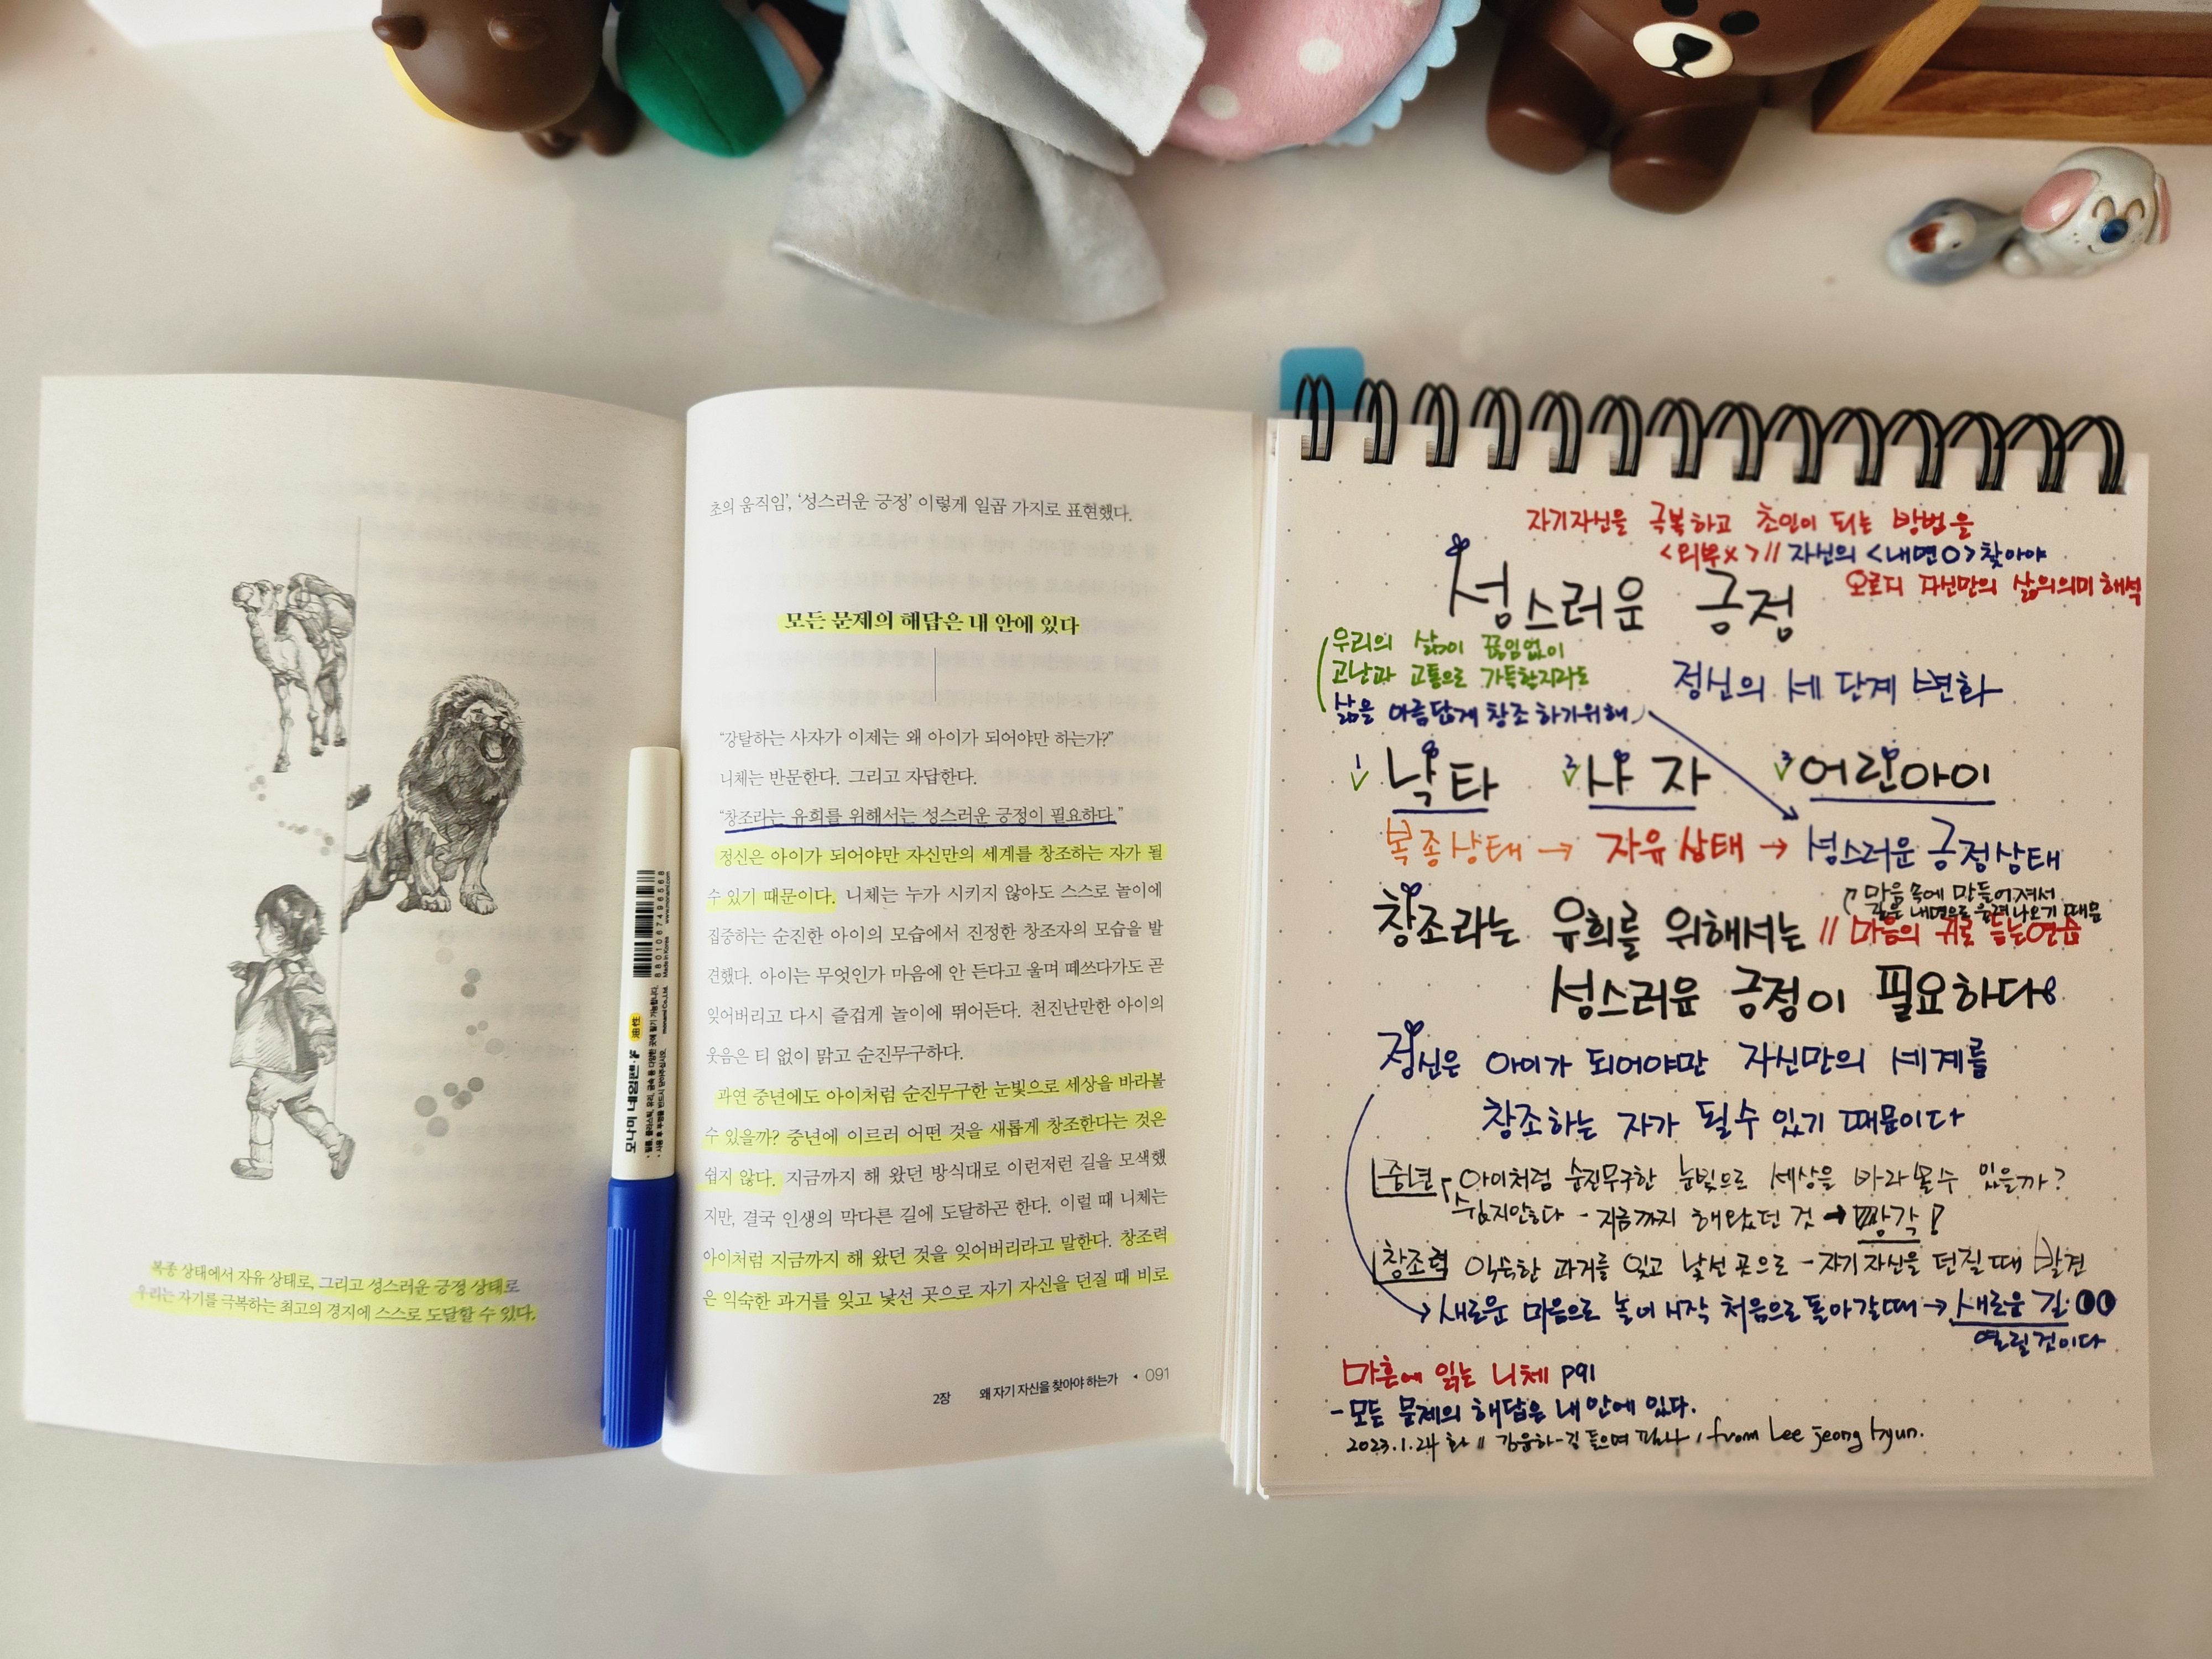 복종 상태에서 자유 상태로, 그리고 성스러운 긍정 상태로
우리는 자기를 극복하는 최고의 경지에 스스로 도달할 수 있다.
초의 움직임’, ‘성스러운 긍정’ 이렇게 일곱 가지로 표현했다.
모든 문제의 해답은 내 안에 있다
“강탈하는 사자가 이제는 왜 아이가 되어야만 하는가?”
니체는 반문한다. 그리고 자답한다.
“창조라는 유희를 위해서는 성스러운 긍정이 필요하다.”
정신은 아이가 되어야만 자신만의 세계를 창조하는 자가 될
수 있기 때문이다. 니체는 누가 시키지 않아도 스스로 놀이에
집중하는 순진한 아이의 모습에서 진정한 창조자의 모습을 발
견했다. 아이는 무엇인가 마음에 안 든다고 울며 떼쓰다가도 곧
잊어버리고 다시 즐겁게 놀이에 뛰어든다. 천진난만한 아이의
웃음은 티 없이 맑고 순진무구하다.
과연 중년에도 아이처럼 순진무구한 눈빛으로 세상을 바라볼
수 있을까? 중년에 이르러 어떤 것을 새롭게 창조한다는 것은
쉽지 않다. 지금까지 해 왔던 방식대로 이런저런 길을 모색했
지만, 결국 인생의 막다른 길에 도달하곤 한다. 이럴 때 니체는
아이처럼 지금까지 해 왔던 것을 잊어버리라고 말한다. 창조력
은 익숙한 과거를 잊고 낯선 곳으로 자기 자신을 던질 때 비로
2장 왜 자기 자신을 찾아야 하는가 ◂ 091
모나미 네임펜·F 油性
Made in Korea
www.monami.com
monami Co.,Ltd.
8801067496568
자기자신을 극복하고 초인이 되는 방법을
<외부x> // 자신의 <내면O> 찾아야
오로지 자신만의 삶의의미 해석
성스러운 긍정
우리의 삶이 끊임없이
고난과 고통으로 가득할지라도
삶을 아름답게 창조 하기위해
정신의 세 단계 변화
1 낙타 2 사자 3 어린아이
복종상태 → 자유상태 → 성스러운 긍정상태
마음속에 만들어져서
깊은 내면으로 울려나오기 때문
창조라는 유희를 위해서는 // 마음의 귀로 듣는연습
성스러운 긍정이 필요하다
정신은 아이가 되어야만 자신만의 세계를
창조하는 자가 될수 있기 때문이다
중년 아이처럼 순진무구한 눈빛으로 세상을 바라볼수 있을까?
쉽지않다 - 지금까지 해왔던 것 → 망각!
창조력 익숙한 과거를 잊고 낯선 곳으로 - 자기자신을 던질때 발견
→ 새로운 마음으로 놀이 시작 처음으로 돌아갈때 → 새로운 길
열릴것이다
마흔에 읽는 니체 P91
- 모든 문제의 해답은 내안에 있다.
2023.1.24 화 // 김윤아-길 들으며 필사, from Lee jeong hyun.